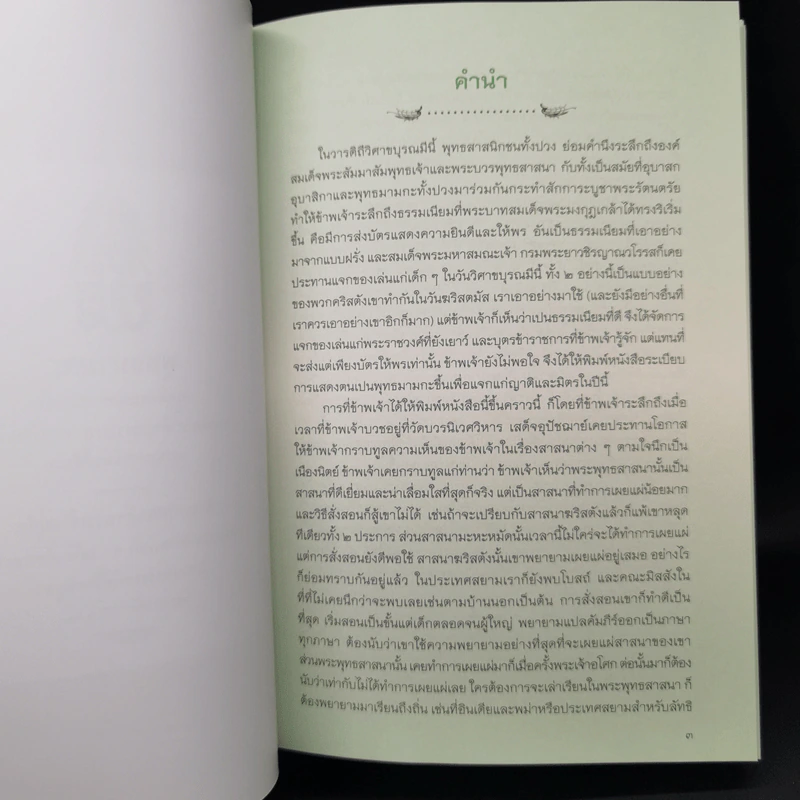 คำนำ
ในวารดิถีวิศาขบุรณมีนี้ พุทธสาสนิกชนทั้งปวง ย่อมคำนึงระลึกถึงองค์
สมเด็จพระสัมมาสัมพุทธเจ้าและพระบวรพุทธสาสนา กับทั้งเป็นสมัยที่อุบาสก
อุบาสิกาและพุทธมามกะทั้งปวงมาร่วมกันกระทำสักการะบูชาพระรัตนตรัย
ทำให้ข้าพเจ้าระลึกถึงธรรมเนียมที่พระบาทสมเด็จพระมงกุฎเกล้าได้ทรงริเริ่ม
ขึ้น คือมีการส่งบัตรแสดงความยินดีและให้พร อันเป็นธรรมเนียมที่เอาอย่าง
มาจากแบบฝรั่ง และสมเด็จพระมหาสมณะเจ้า กรมพระยาวชิรญาณวโรรสก็เคย
ประทานแจกของเล่นแก่เด็ก ๆ ในวันวิศาขบุรณมีนี้ ทั้ง ๒ อย่างนี้เป็นแบบอย่าง
ของพวกคริสตังเขาทำกันในวันฆริสตมัส เราเอาอย่างมาใช้ (และยังมีอย่างอื่นที่
เราควรเอาอย่างเขาอีกก็มาก) แต่ข้าพเจ้าก็เห็นว่าเปนธรรมเนียมที่ดี จึงได้จัดการ
แจกของเล่นแก่พระราชวงศ์ที่ยังเยาว์ และบุตรข้าราชการที่ข้าพเจ้ารู้จัก แต่แทนที่
จะส่งแต่เพียงบัตรให้พรเท่านั้น ข้าพเจ้ายังไม่พอใจ จึงได้ให้พิมพ์หนังสือระเบียบ
การแสดงตนเปนพุทธมามกะขึ้นเพื่อแจกแก่ญาติและมิตรในปีนี้
การที่ข้าพเจ้าได้ให้พิมพ์หนังสือนี้ขึ้นคราวนี้ ก็โดยที่ข้าพเจ้าระลึกถึงเมื่อ
เวลาที่ข้าพเจ้าบวชอยู่ที่วัดบวรนิเวศวิหาร เสด็จอุปัชฌาย์เคยประทานโอกาส
ให้ข้าพเจ้ากราบทูลความเห็นของข้าพเจ้าในเรื่องสาสนาต่าง ๆ ตามใจนึกเป็น
เนืองนิตย์ ข้าพเจ้าเคยกราบทูลแก่ท่านว่า ข้าพเจ้าเห็นว่าพระพุทธสาสนานั้นเป็น
สาสนาที่ดีเยี่ยมและน่าเลื่อมใสที่สุดก็จริง แต่เป็นสาสนาที่ทำการเผยแผ่น้อยมาก
และวิธีสั่งสอนก็สู้เขาไม่ได้ เช่นถ้าจะเปรียบกับสาสนาฆริสตังแล้วก็แพ้เขาหลุด
ทีเดียวทั้ง ๒ ประการ ส่วนสาสนามะหะหมัดนั้นเวลานี้ไม่ใคร่จะได้ทำการเผยแผ่
แต่การสั่งสอนยังดีพอใช้ สาสนาฆริสตังนั้นเขาพยายามเผยแผ่อยู่เสมอ อย่างไร
ก็ย่อมทราบกันอยู่แล้ว ในประเทศสยามเราก็ยังพบโบสถ์ และคณะมิสสังใน
ที่ที่ไม่เคยนึกว่าจะพบเลยเช่นตามบ้านนอกเป็นต้น การสั่งสอนเขาก็ทำดีเป็น
ที่สุด เริ่มสอนเป็นขั้นแต่เด็กตลอดจนผู้ใหญ่ พยายามแปลคัมภีร์ออกเป็นภาษา
ทุกภาษา ต้องนับว่าเขาใช้ความพยายามอย่างที่สุดที่จะเผยแผ่สาสนาของเขา
ส่วนพระพุทธสาสนานั้น เคยทำการเผยแผ่มาก็เมื่อครั้งพระเจ้าอโศก ต่อนั้นมาก็ต้อง
นับว่าเท่ากับไม่ได้ทำการเผยแผ่เลย ใครต้องการจะเล่าเรียนในพระพุทธสาสนา ก็
ต้องพยายามมาเรียนถึงถิ่น เช่นที่อินเดียและพม่าหรือประเทศสยามสำหรับลัทธิ
๓